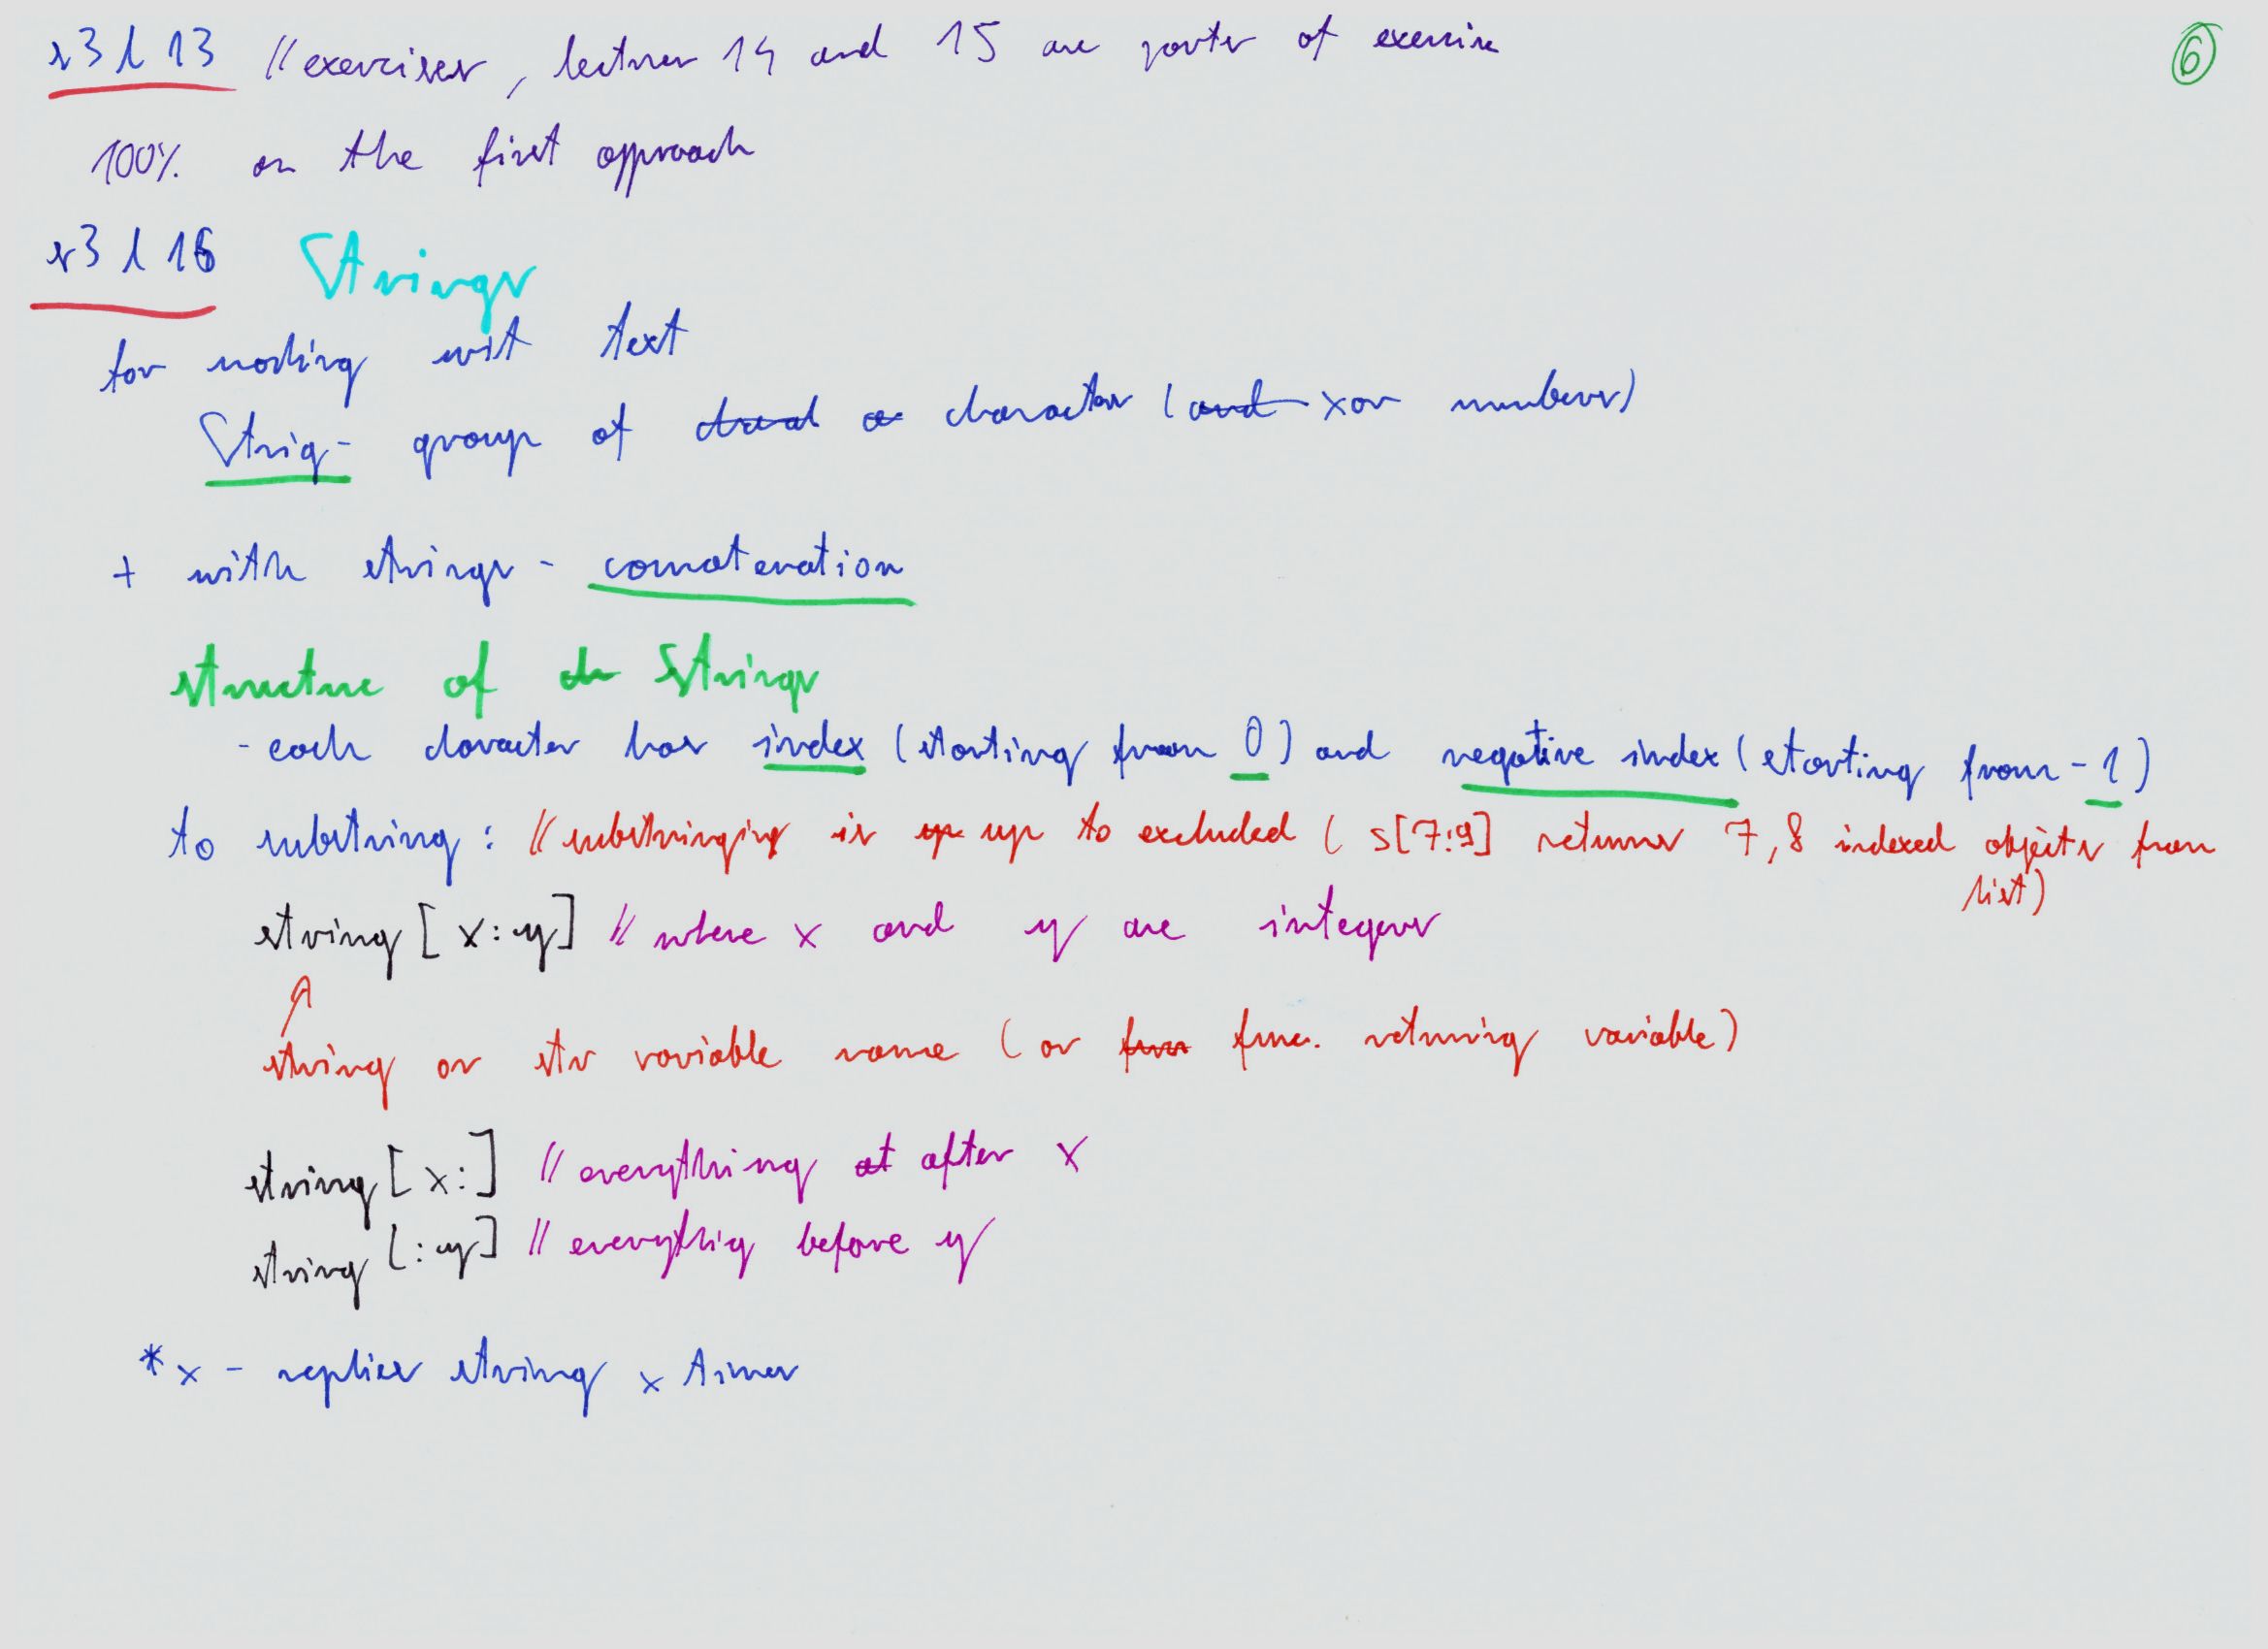 s3 l 13 // exercises, lectures 14 and 15 are parts of exercise
6
100% on the first approach
s3 l 16 Strings
for working wit text
Strig - group of character (and xor numbers)
+ with strings - concatenation
structure of Strings
- each character has index (starting from 0) and negative index (starting from -1)
to substring: // substringing is up up to excluded ( s[7:9] returns 7,8 indexed objects from
list)
string [x:y] // where x and y are integers
string or str variable name (or func. returning variable)
string [x:] // everything at after x
string [:y] // everythig before y
*x - replies string x times